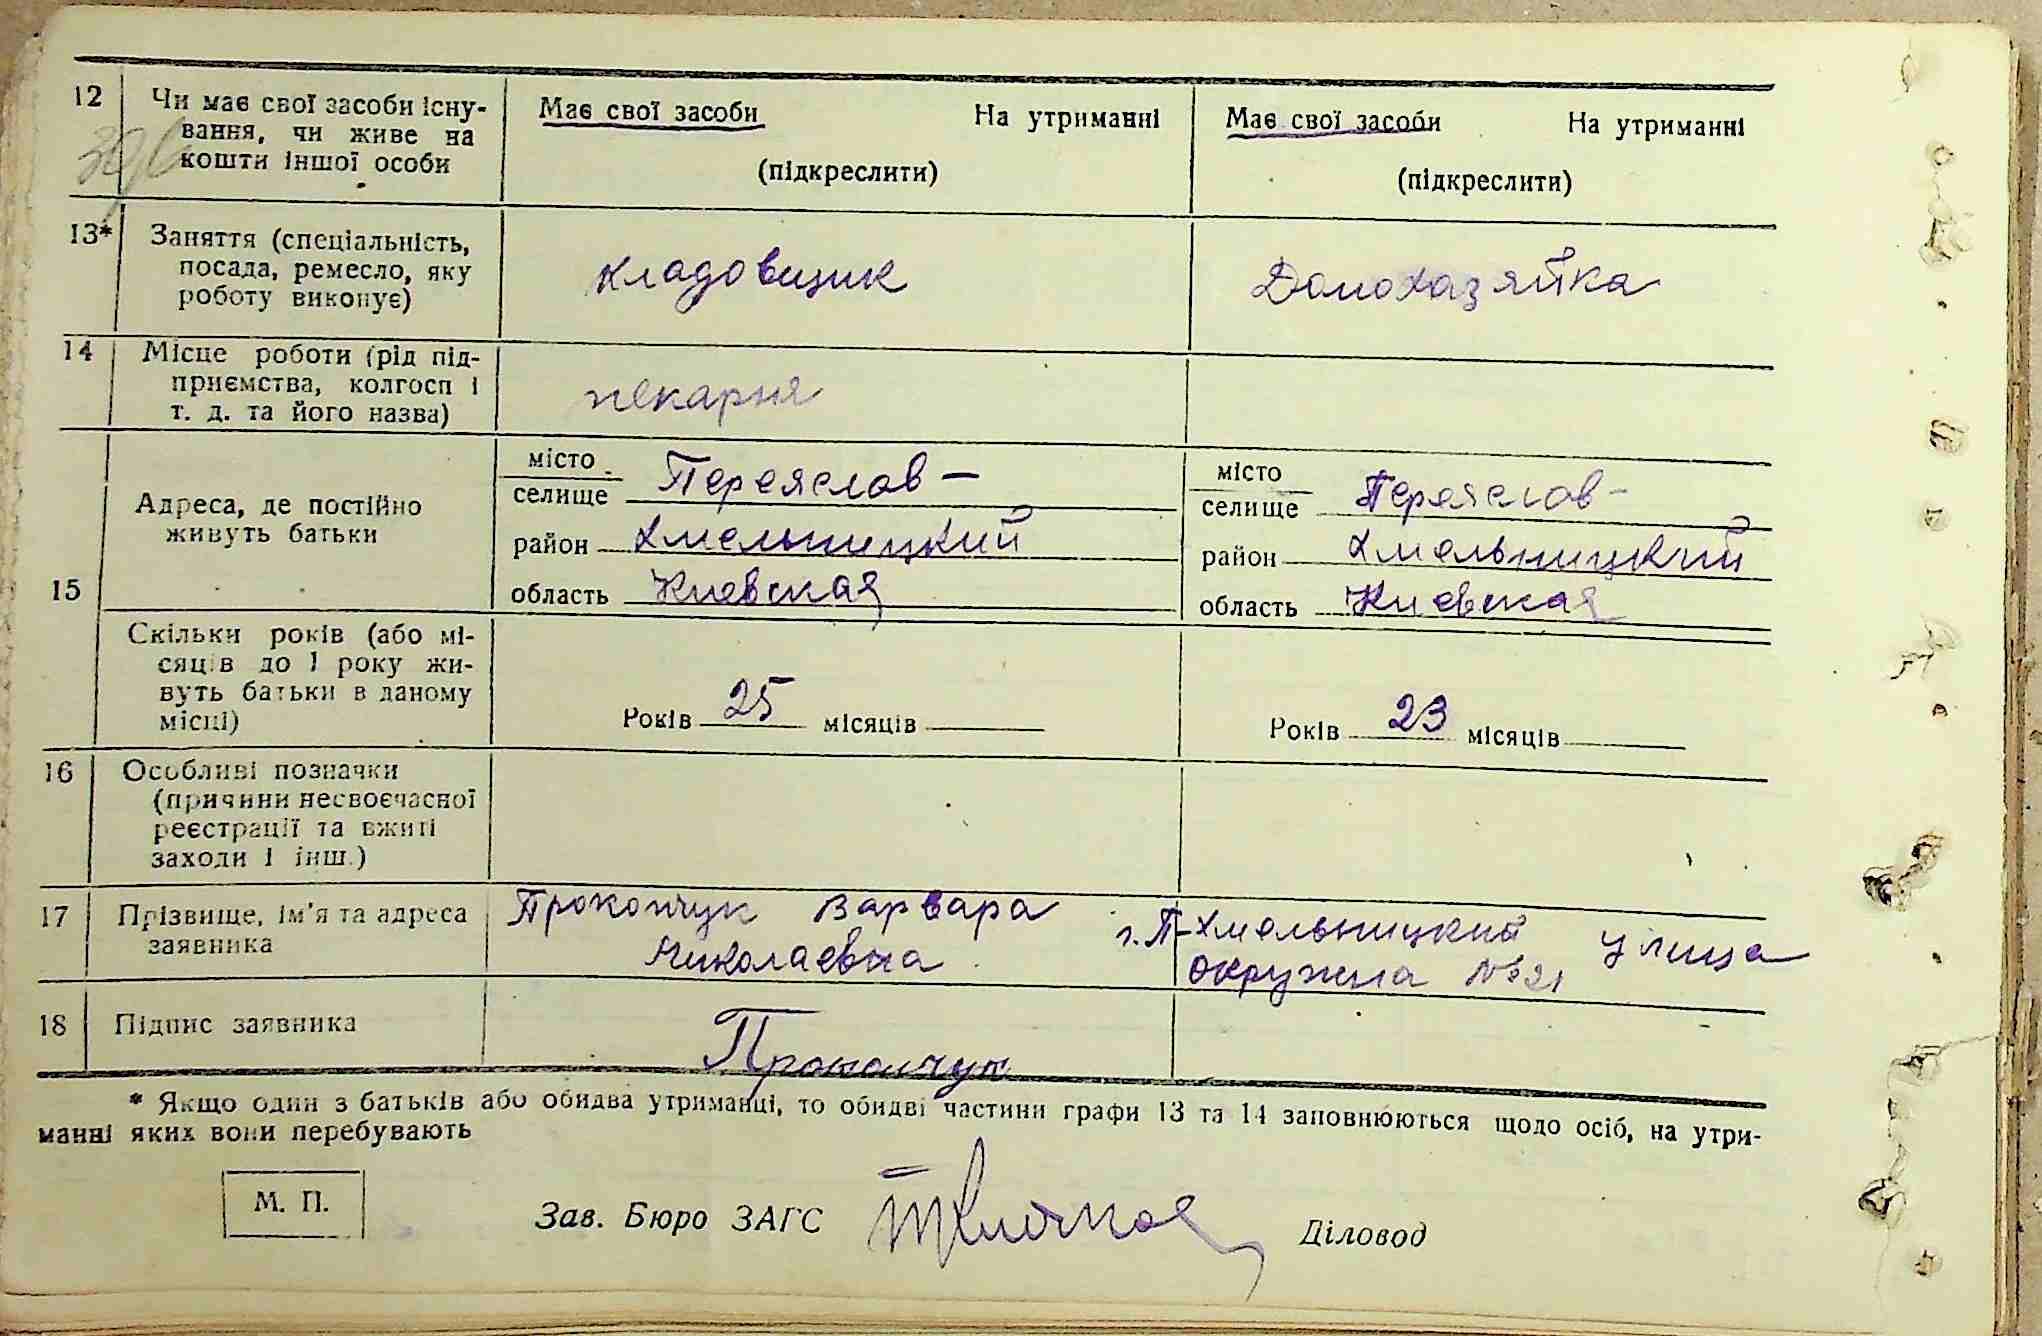 12 Чи має свої засоби існу- Має свої засоби На утриманні Має свої засоби На утриманні
вання, чи живе на
кошти іншої особи (підкреслити) (підкреслити)
13* Заняття (спеціальність,
посада, ремесло, яку кладовщик Домохазяйка
роботу виконує)
14 Місце роботи (рід під-
приємства, колгосп і пекарня
т. д. та його назва)
місто Переяслов- місто Переяслов-
Адреса, де постійно селище селище
живуть батьки район Хмельницкий район Хмельницкий
15 область Киевская область Киевская
Скільки років (або мі-
сяців до 1 року жи-
вуть батьки в даному
місці) Років 25 місяців Років 23 місяців
16 Особливі позначки
(причини несвоєчасної
реєстрації та вжиті
заходи і інш.)
17 Прізвище, ім'я та адреса Прокопчук Варвара г. П-Хмельницкий улица
заявника Николаевна окружна №21
18 Підпис заявника Прокопчук
* Якщо один з батьків або обидва утриманці, то обидві частини графи 13 та 14 заповнюються щодо осіб, на утри-
манні яких вони перебувають
М. П. Зав. Бюро ЗАГС Діловод